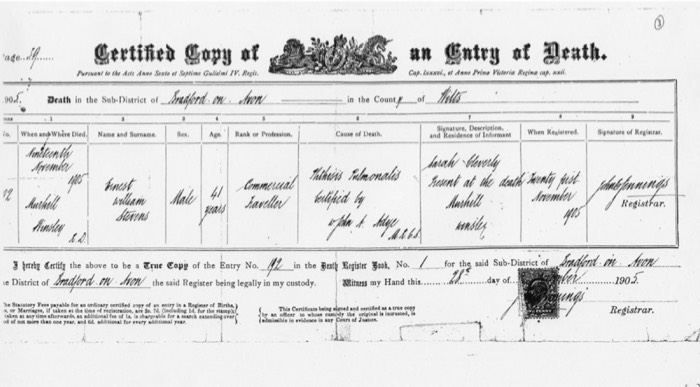 ③
Certified Copy of an Entry of Death.
Pursuant to the Acts Anno Sexto et Septimo Gulielmi IV. Regis. Cap. lxxxvi., et Anno Primo Victoriæ Reginæ cap. xxii.
1905. Death in the Sub-District of Bradford on Avon in the County of Wilts
1 2 3 4 5 6 7 8 9
No. When and Where Died. Name and Surname. Sex. Age. Rank or Profession. Cause of Death. Signature, Description, and Residence of Informant When Registered. Signature of Registrar.
192 Nineteenth November 1905 Murhill Winsley R.D.
Ernest William Stevens
Male
41 years
Commercial Traveller
Phthisis Pulmonalis Certified by John A. Adye M.R.C.S.
Sarah Beverly Present at the death Murhill Winsley
Twenty first November 1905
Jennings Registrar.
I hereby Certify the above to be a True Copy of the Entry No. 192 in the Death Register Book, No. 1 for the said Sub-District of Bradford on Avon
District of Bradford on Avon the said Register being legally in my custody. Witness my Hand this 28th day of 1905.
Registrar.
The Statutory Fees payable for an ordinary certified copy of an entry in a Register of Births,
or Marriages, if taken at the time of registration, are 2s. 7d. (including 1d. for the stamp);
taken at any time afterwards, an additional fee of 1s. is chargeable for a search extending over
of not more than one year, and 6d. additional for every additional year.
This Certificate being signed and certified as a true copy
by an officer in whose custody the original is intrusted, is
admissible in evidence in any Court of Justice.